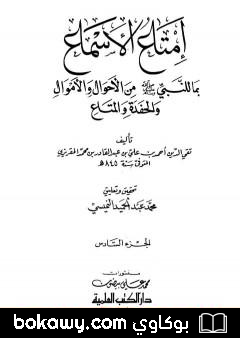 إمتاع الأسماع
بما للنبي ﷺ من الأحوال والأموال
والحفدة والمتاع
تأليف
تقي الدين أحمد بن علي بن عبد القادر بن محمد المقريزي
المتوفى سنة ٨٤٥ هـ
تحقيق وتعليق
محمد عبد الحميد النميسي
الجزء السادس
منشورات
محمد علي بيضون
دار الكتب العلمية
بوكاوي bokawy.com